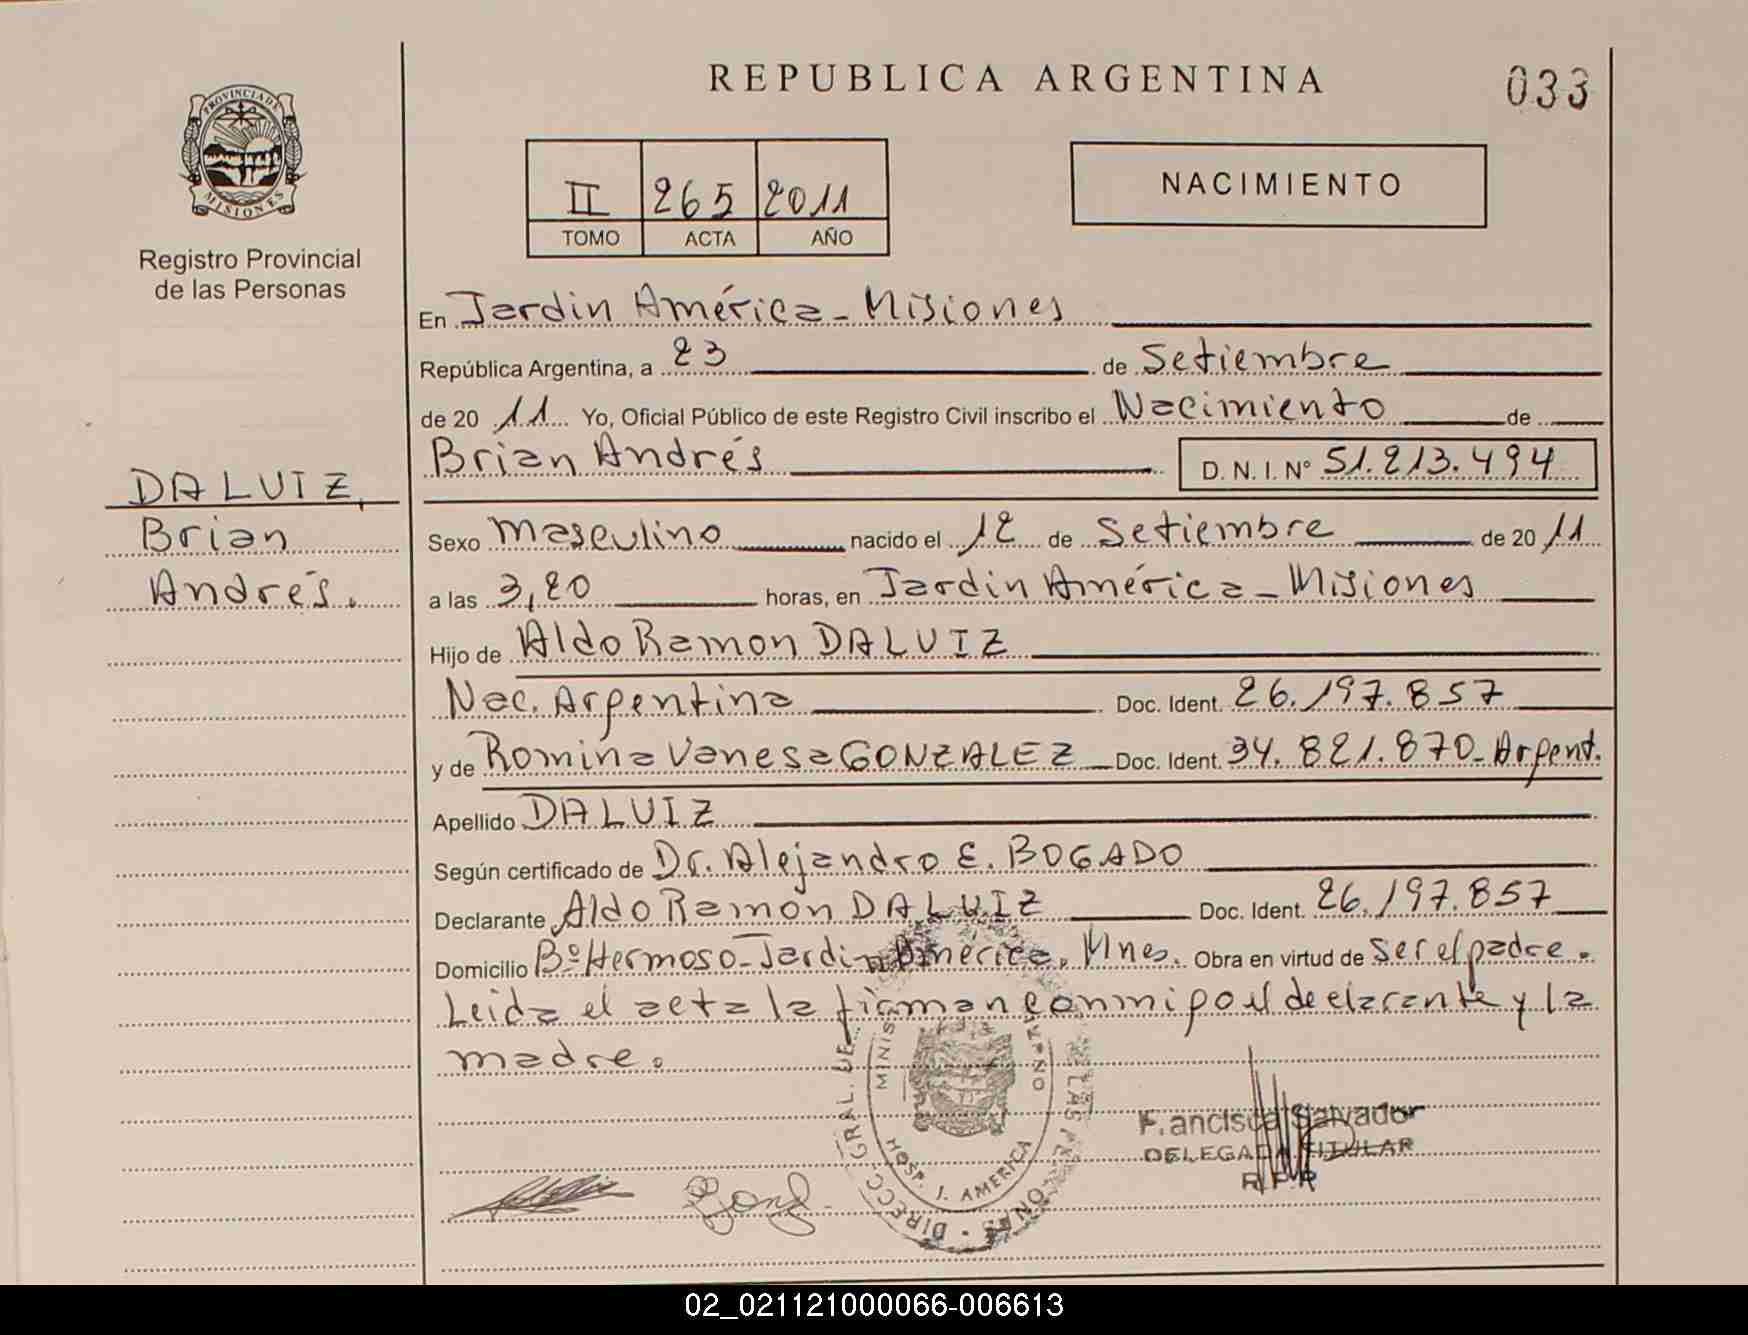 REPUBLICA ARGENTINA
033
PROVINCIA DE MISIONES
Registro Provincial
de las Personas
II 265 2011
TOMO ACTA AÑO
NACIMIENTO
En Jardin América - Misiones
República Argentina, a 23 de Setiembre
de 20 11 Yo, Oficial Público de este Registro Civil inscribo el Nacimiento de
Brian Andrés D. N. I. Nº 51.213.494
DA LUIZ,
Brian
Andrés.
Sexo Masculino nacido el 12 de Setiembre de 20 11
a las 3,20 horas, en Jardin América - Misiones
Hijo de Aldo Ramon DA LUIZ
Nac. Argentina Doc. Ident. 26.197.857
y de Romina Vanesa GONZALEZ - Doc. Ident. 34.821.870 - Argent.
Apellido DA LUIZ
Según certificado de Dr. Alejandro E. BOGADO
Declarante Aldo Ramon DA LUIZ Doc. Ident. 26.197.857
Domicilio Bº Hermoso - Jardin América. Mnes. Obra en virtud de Ser el padre.
Leida el acta la firman conmigo el declarante y la
madre.
DIRECC. GRAL. DE LAS PERSONAS
HOSP. J. AMERICA
Francisca Salvador
DELEGADA TITULAR
R.P.P.
02_021121000066-006613